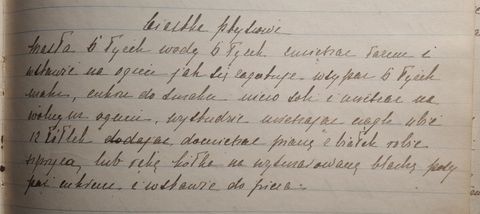 Ciastka ptysiowe
Masła 5 łyżek wody 5 łyżek zmieszać razem i
wstawić na ogniu jak się zagotuje wsypać 5 łyżek
mąki, cukru do smaku nieco soli i mieszać na
wolnym ogniu, wystudzić mieszając ciągle wbić
12 żółtek dodając, domieszać pianę z białek robić
szprycą, lub ręką kółka na wysmarowaną blachę posy
pać cukrem i wstawić do pieca.